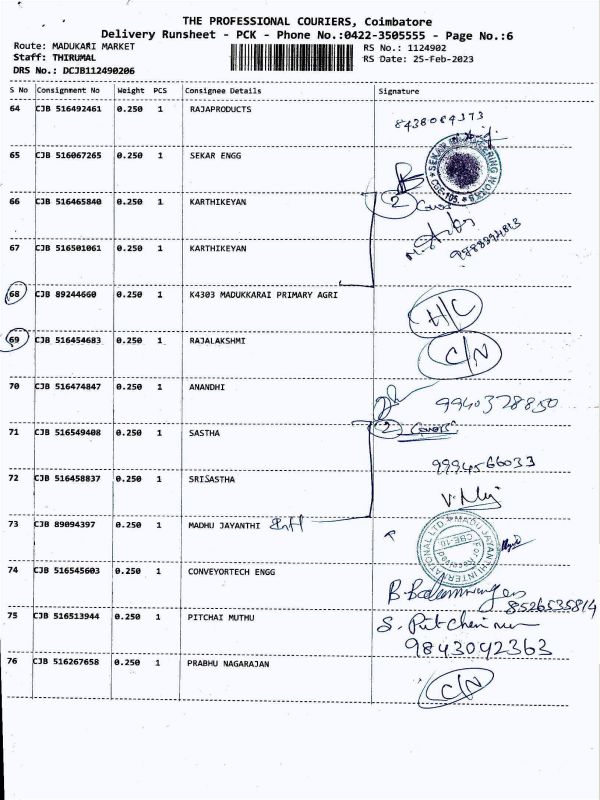 THE PROFESSIONAL COURIERS, Coimbatore
Delivery Runsheet - PCK - Phone No.:0422-3505555 - Page No.:6
Route: MADUKARI MARKET RS No.: 1124902
Staff: THIRUMAL RS Date: 25-Feb-2023
DRS No.: DCJB112490206
S No Consignment No Weight PCS Consignee Details Signature
64 CJB 516492461 0.250 1 RAJAPRODUCTS
65 CJB 516067265 0.250 1 SEKAR ENGG
66 CJB 516465840 0.250 1 KARTHIKEYAN 2
67 CJB 516501061 0.250 1 KARTHIKEYAN
68 CJB 89244660 0.250 1 K4303 MADUKKARAI PRIMARY AGRI H/C
69 CJB 516454683 0.250 1 RAJALAKSHMI C/N
70 CJB 516474847 0.250 1 ANANDHI 9940378850
71 CJB 516549408 0.250 1 SASTHA 2
9994566033
72 CJB 516458837 0.250 1 SRISASTHA
73 CJB 89094397 0.250 1 MADHU JAYANTHI
74 CJB 516545603 0.250 1 CONVEYORTECH ENGG
8526535814
75 CJB 516513944 0.250 1 PITCHAI MUTHU
9843042363
76 CJB 516267658 0.250 1 PRABHU NAGARAJAN C/N